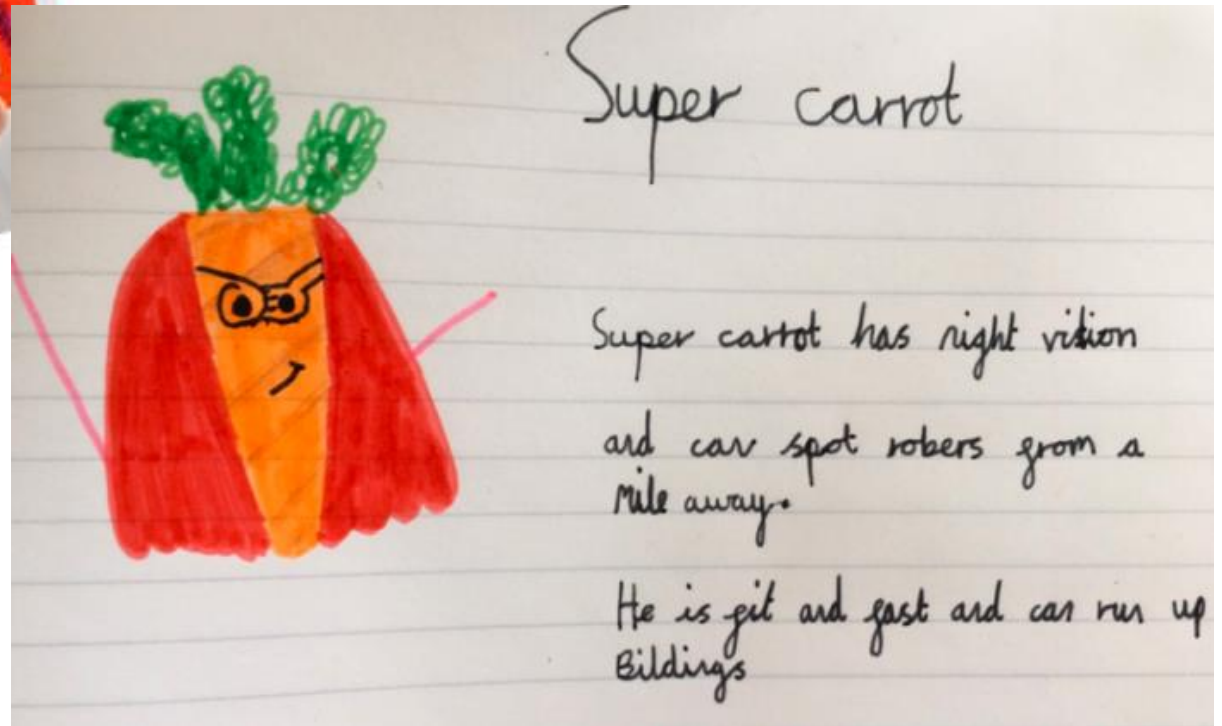 Super carrot
Super carrot has night vision
and can spot robers from a
mile away.
He is fit and fast and can run up
Bildings